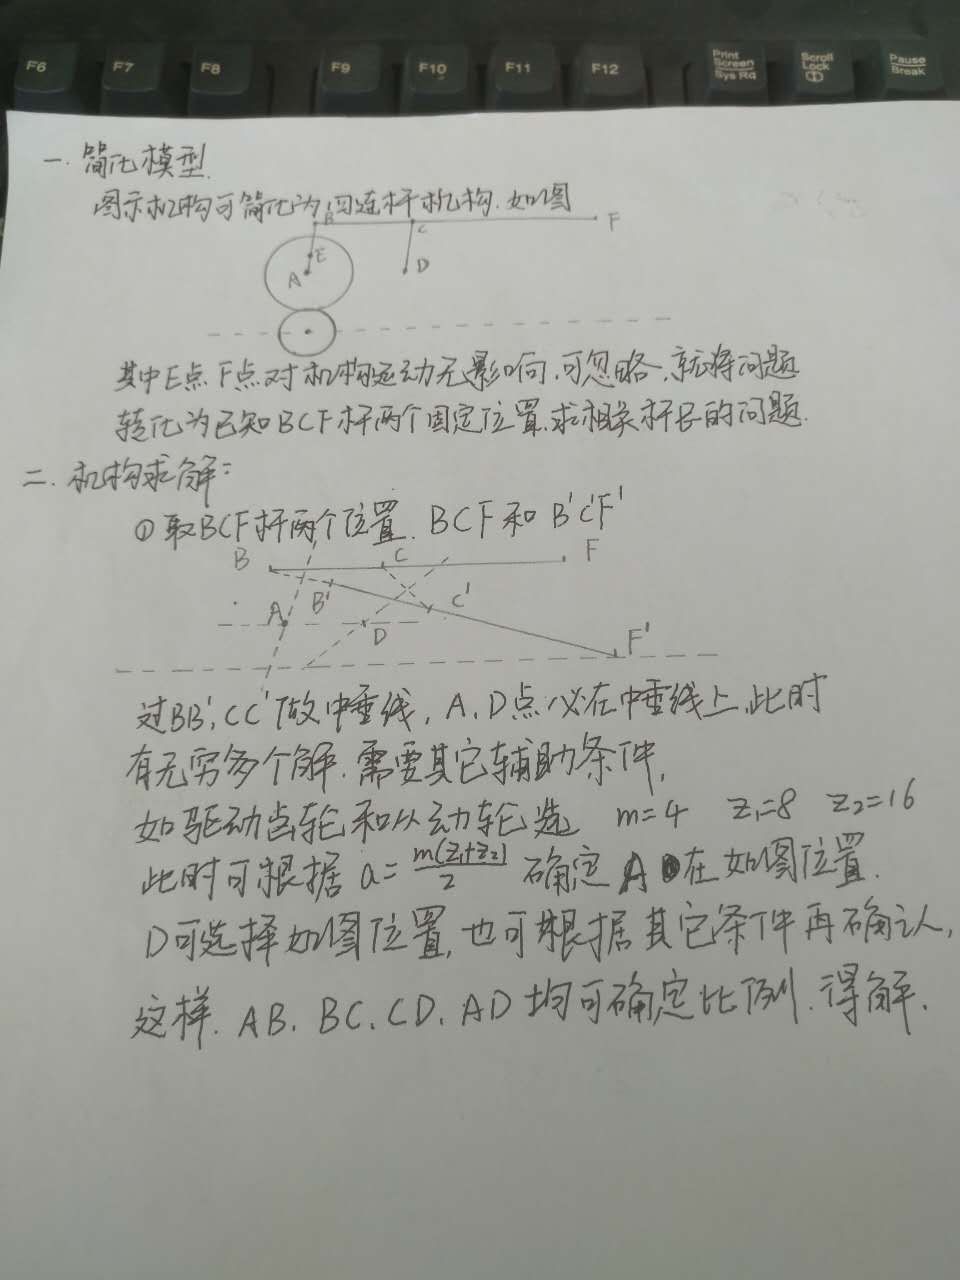 F6 F7 F8 F9 F10 F11 F12 Print Screen Sys Rq Scroll Lock Pause Break
一. 简化模型.
图示机构可简化为四连杆机构. 如图
B C F
E
A D
其中E点 F点对机构运动无影响, 可忽略, 就将问题
转化为已知BCF杆两个固定位置, 求相关杆长的问题.
二. 机构求解:
① 取BCF杆两个位置. BCF和B'C'F'
B C F
A B' C'
D F'
过BB', CC'做中垂线, A、D点必在中垂线上, 此时
有无穷多个解. 需要其它辅助条件,
如驱动齿轮和从动轮选 m=4 z₁=8 z₂=16
此时可根据 a=m(z₁+z₂)/2 确定A在如图位置.
D可选择如图位置, 也可根据其它条件再确认,
这样. AB、BC、CD、AD均可确定比例. 得解.